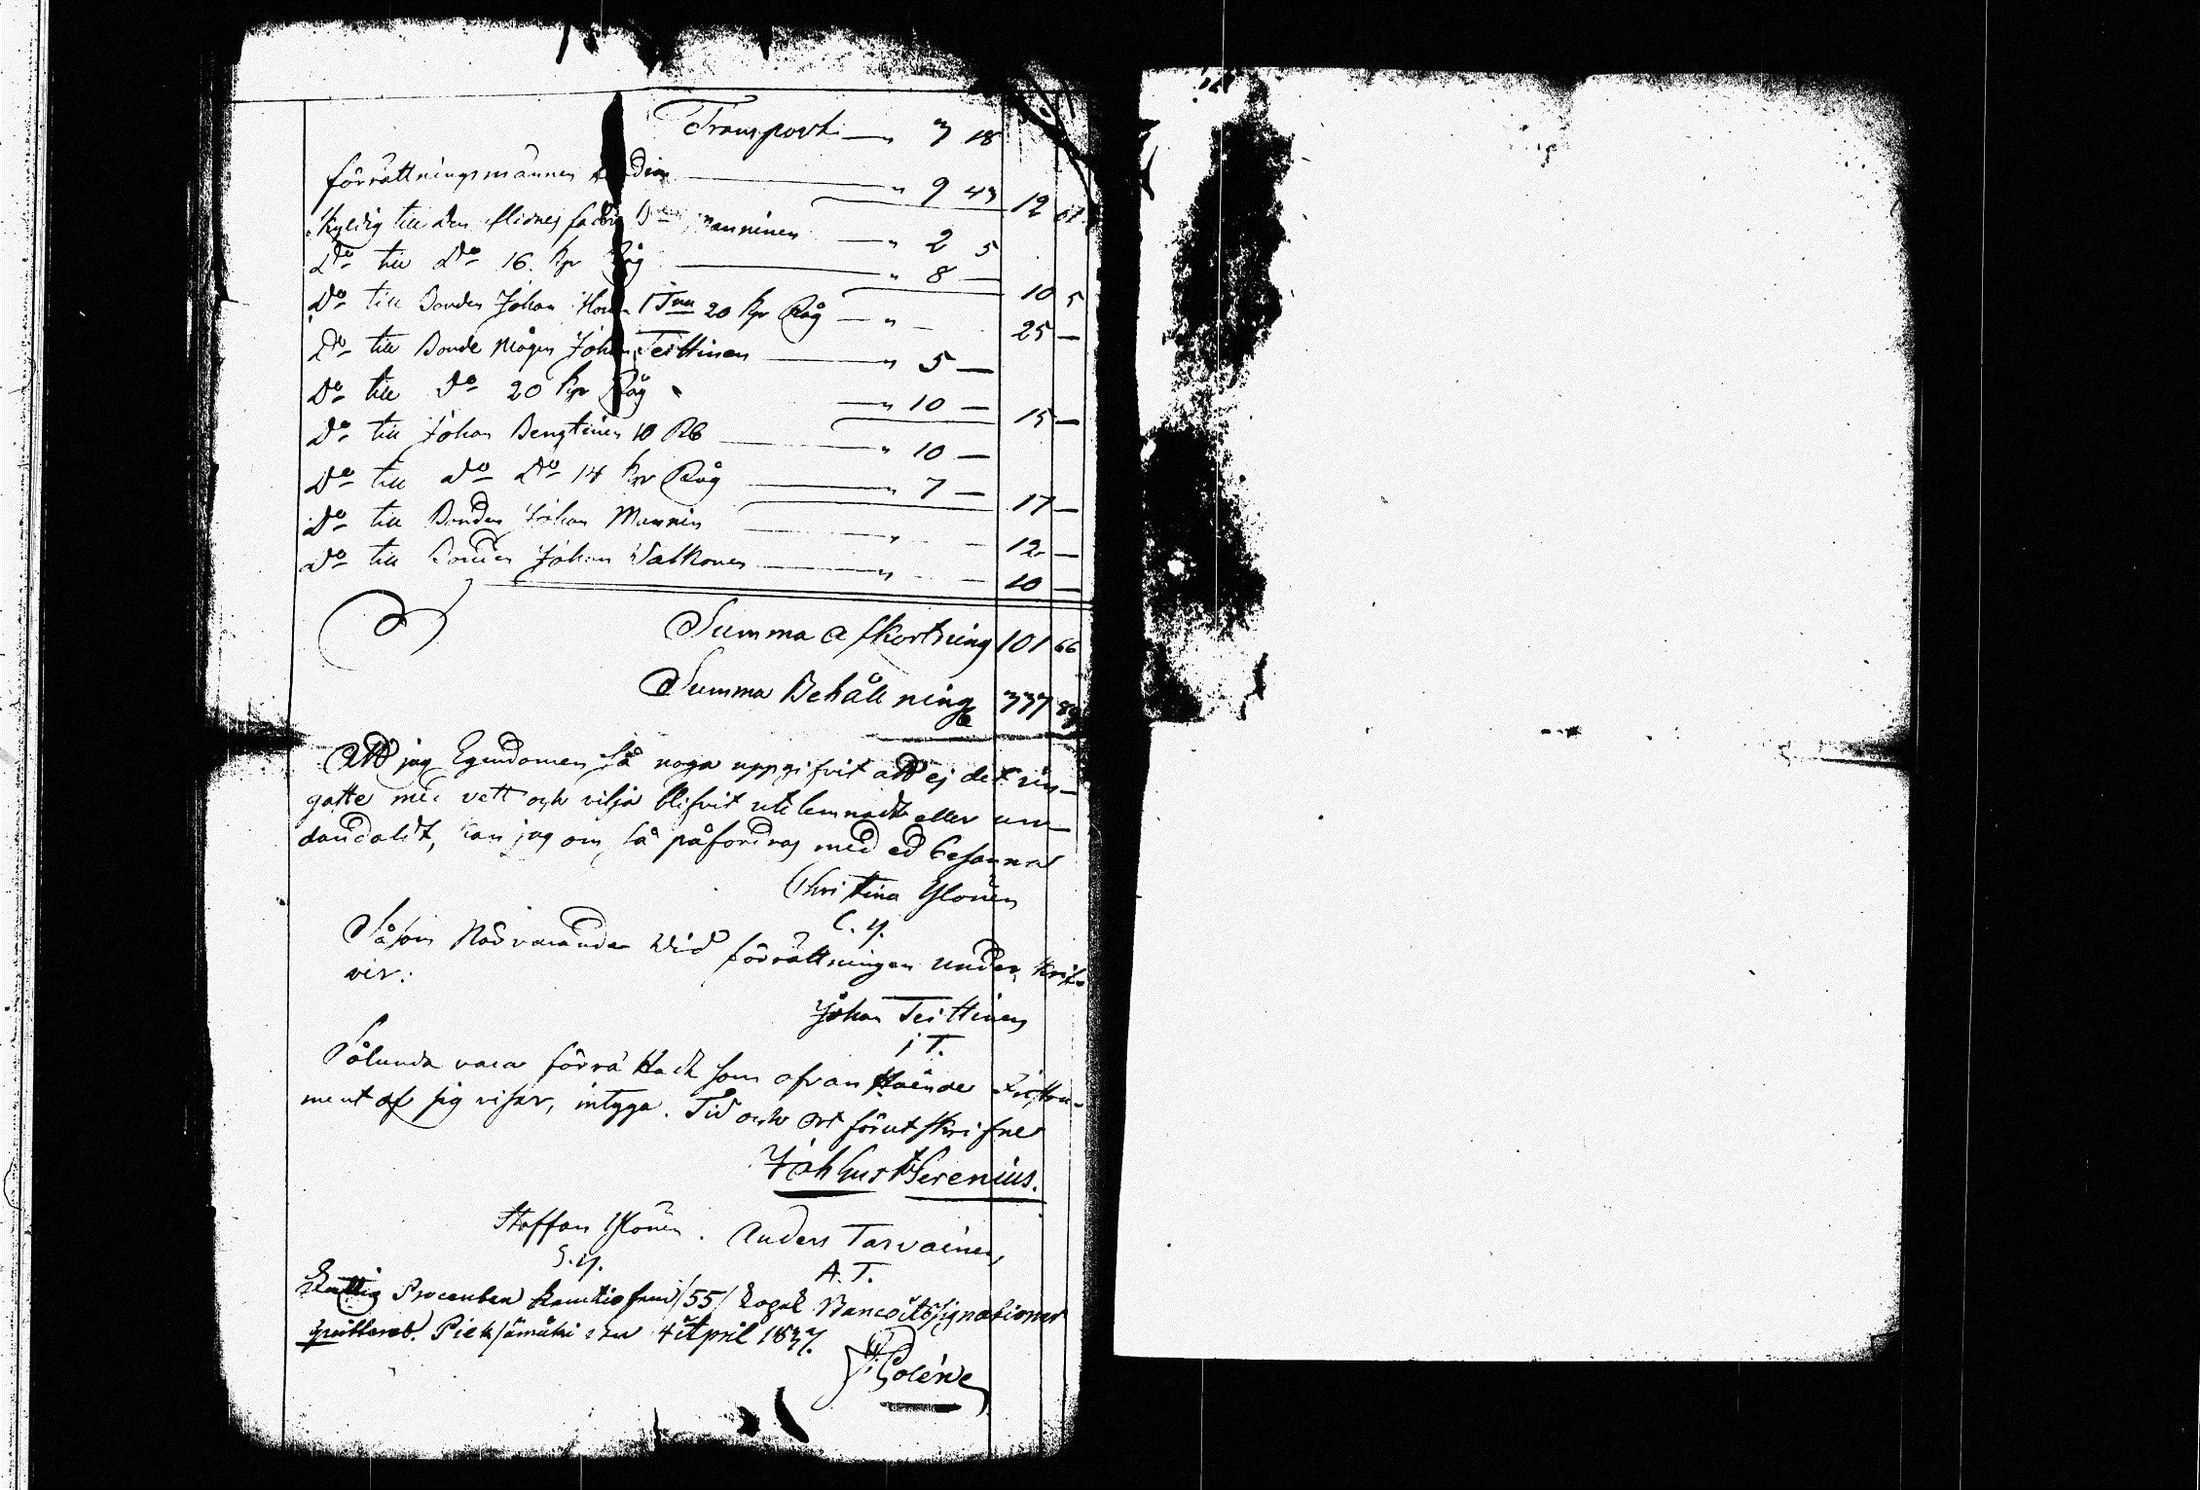 Transport — " 3 18
förrättningsmännen — " 9 43 12 61
skyldig till den aflidnes fader Manninen — " 2 5
Do till Do 16 kpr Råg — " 8 — 10 5
Do till Bonden Johan 1 Tnn 20 kpr Råg — " — 25 —
Do till Bonde Mågen Johan Teittinen — " 5 —
Do till Do 20 kpr Råg — " 10 — 15 —
Do till Johan Bengtinen 10 RB — " 10 —
Do till Do Do 14 kpr Råg — " 7 — 17 —
Do till Bonden Johan Mannin " — 12 —
Do till Bonden Johan Walkonen — " — 10 —
Summa afkortning 101 66
Summa Behållning 337 89
Att jag Egendomen så noga uppgifvit att ej det rin-
gaste med vett och vilja blifvit utelemnadt eller un-
dandoldt, kan jag om så påfordras med ed besanna
Christina Ylönen
C. Y.
Såsom Närvarande wid förrättningen underskrif-
ver:
Johan Teittinen
J T.
Sålunda vara förrättadt som ofvanstående Instru-
ment af sig visar, intyga. Tid och Ort förutskrifne
Joh Gust Serenius.
Staffan Ylönen. Anders Tarvainen
S. Y. A. T.
Fattig Procenten femtiofem /55/ kopek Banco Assignationer
quitteras. Pieksämäki den 4 April 1837.